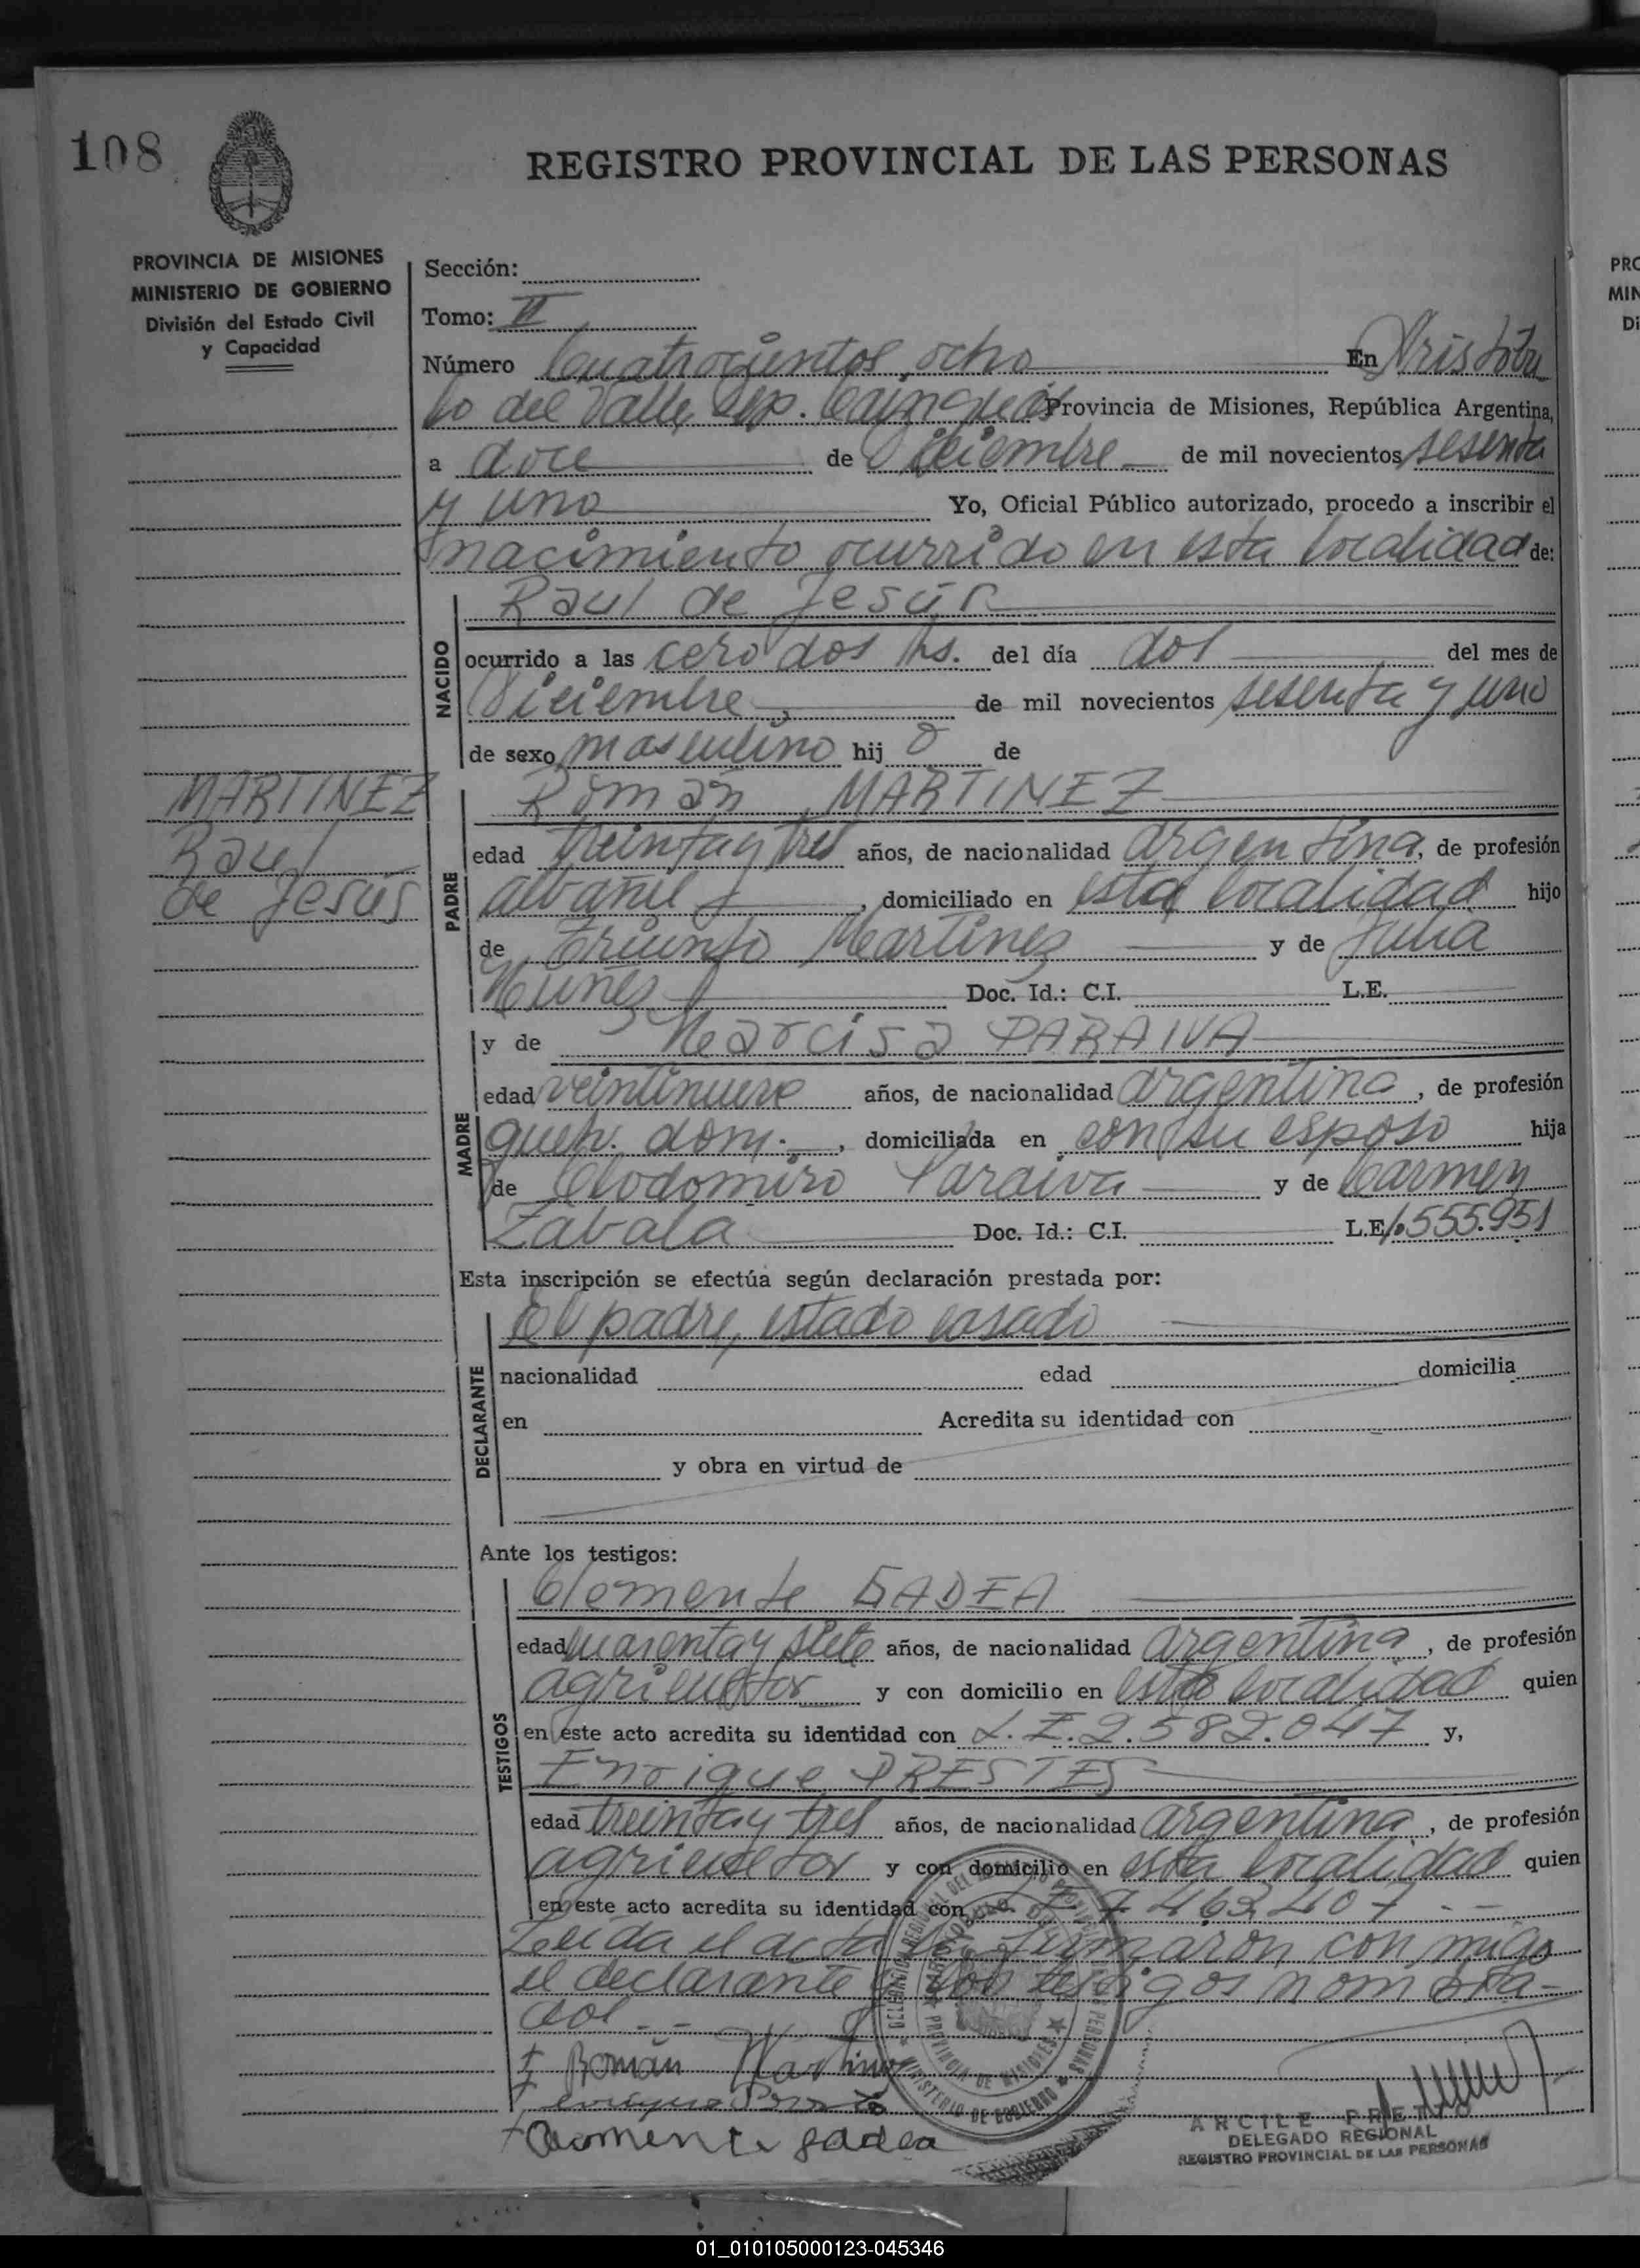 108
REGISTRO PROVINCIAL DE LAS PERSONAS
PROVINCIA DE MISIONES
MINISTERIO DE GOBIERNO
División del Estado Civil
y Capacidad
Sección:
Tomo: II
Número Cuatrocientos ocho En Aristóbu
lo del Valle, Dep. Cainguás Provincia de Misiones, República Argentina,
a doce de Diciembre de mil novecientos sesenta
y uno Yo, Oficial Público autorizado, procedo a inscribir el
nacimiento ocurrido en esta localidad de:
Raul de Jesús
NACIDO
ocurrido a las cero dos hs. del día dos del mes de
Diciembre, de mil novecientos sesenta y uno
de sexo masculino hij o de
MARTINEZ
Raul
de Jesús
Román MARTINEZ
PADRE
edad treinta y tres años, de nacionalidad argentina, de profesión
albañil, domiciliado en esta localidad hijo
de Triunfo Martinez y de Julia
Núñez Doc. Id.: C.I. L.E.
y de Narcisa PARAIVA
MADRE
edad veintinueve años, de nacionalidad argentina, de profesión
queh. dom., domiciliada en con su esposo hija
de Clodomiro Paraiva y de Carmen
Zabala Doc. Id.: C.I. L.E. 6.555.951
Esta inscripción se efectúa según declaración prestada por:
El padre, estado casado
DECLARANTE
nacionalidad edad domicilia
en Acredita su identidad con
y obra en virtud de
Ante los testigos:
Clemente GADEA
TESTIGOS
edad cuarenta y siete años, de nacionalidad argentina, de profesión
agricultor y con domicilio en esta localidad quien
en este acto acredita su identidad con L.E. 2.582.047 y,
Enrique PRESTES
edad treinta y tres años, de nacionalidad argentina, de profesión
agricultor y con domicilio en esta localidad quien
en este acto acredita su identidad con 7.463.407 --
Leida el acta la firmaron con migo
el declarante y los testigos nombra-
dos --
Román Martinez
Clemente gadea
ARCILE PRIETTO
DELEGADO REGIONAL
REGISTRO PROVINCIAL DE LAS PERSONAS
01_010105000123-045346